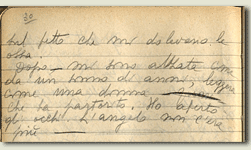 30
sul petto che mi dolevano le
ossa.
Dopo - mi sono alzata come
da un sonno di anni, leggera
come una donna
che ha partorito. Ho aperto
gli occhi. L'angelo non c'era
più